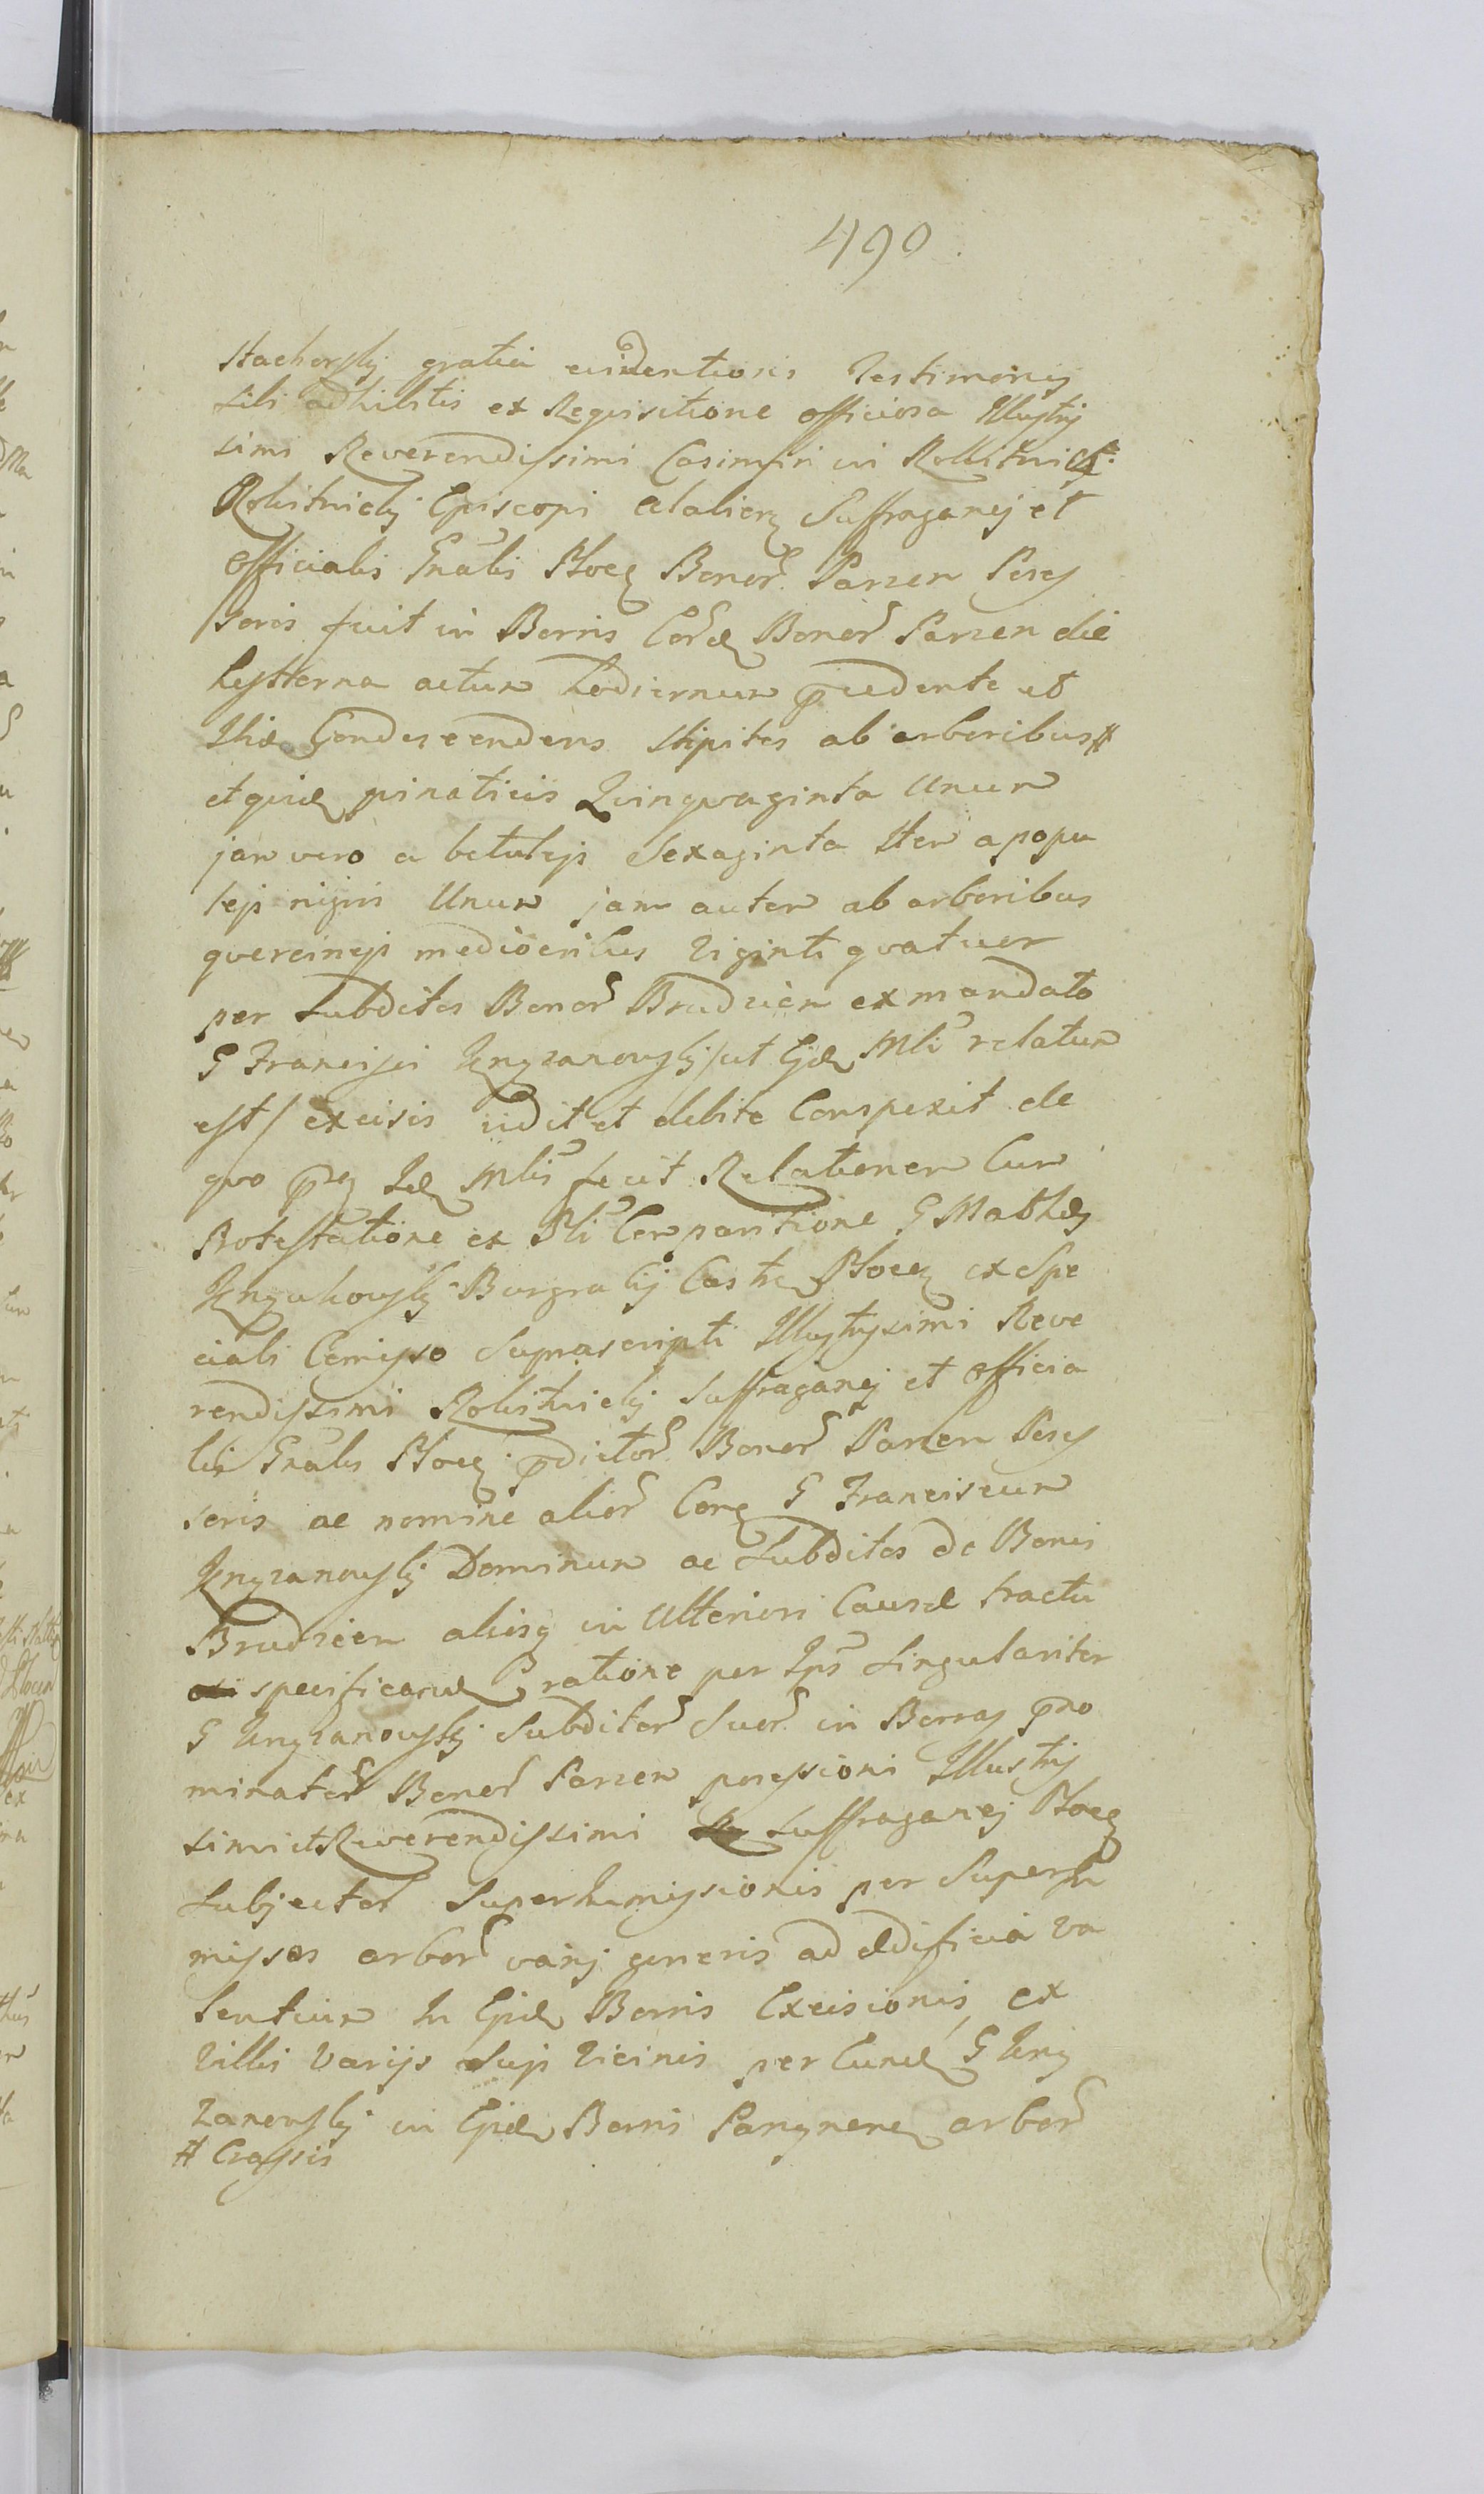 490
Stachorskij gratia evidentioris Testimonij
sibi adhibitis ex Requisitione officiosa Illustris
simi Reverendissimi Casimiri in Rokitnica
Rokitnicki Episcopi Suffraganej et
Officialis Gnalis Plocen Bonor Parzen Poses
soris fuit in Borris Eord Bonor Parzen die
hesterna actum hodiernum pcedente et
Ibid Condescendens stipites ab arboribus #
et quid pinaticis Quinquaginta Unum
jam vero a betuleis Sexaginta Item a popu
leis nigris Unum jam autem ab arboribus
quercineis mediocribus Viginti quatuor
per Subditos Bonor Brudzien ex mandato
G Francisci ut Eid Mli relatum
est / excisis vidit et debite Conspexit de
quo Id Mlis fecit Relationem Cum
Protestatione ex Pli Comparitione G Mathei
Burgrabij Castri Plocen ex Spe
ciali Comisso Suprascripti Illustrissimi Reve
rendissimi Rokitnickij Suffraganej et Officia
lis Gnalis Plocen pdictor Bonor Parzen Poses
soris ac nomine alior Cong G Franciscum
Dominum ac Subditos de Bonis
Brudzien aliosq in Ulteriori Causæ tractu
specificand ratione per Ips Singulariter
G Subditor Suor in Borras pno
minator Bonor Parzen posessioni Illustris
simi et Reverendissimi Suffraganej Plocen
Subjector Superimissionis per Superim
missos arbor varij generis ad ædificia va
lentium In Eisd Borris Excisionis, ex
Villis Varijs Suis Vicinis per Eund G
in Eisd Borris arbor
# Crassis